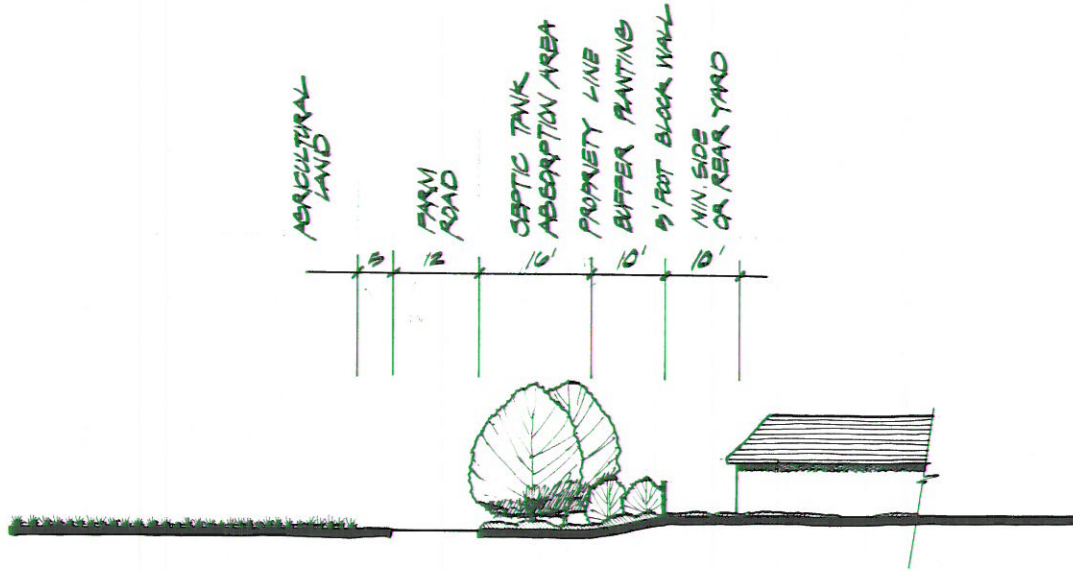 AGRICULTURAL
LAND
FARM
ROAD
SEPTIC TANK
ABSORPTION AREA
PROPRIETY LINE
BUFFER PLANTING
5' FOOT BLOCK WALL
MIN. SIDE
OR REAR YARD
5
12
16'
10'
10'